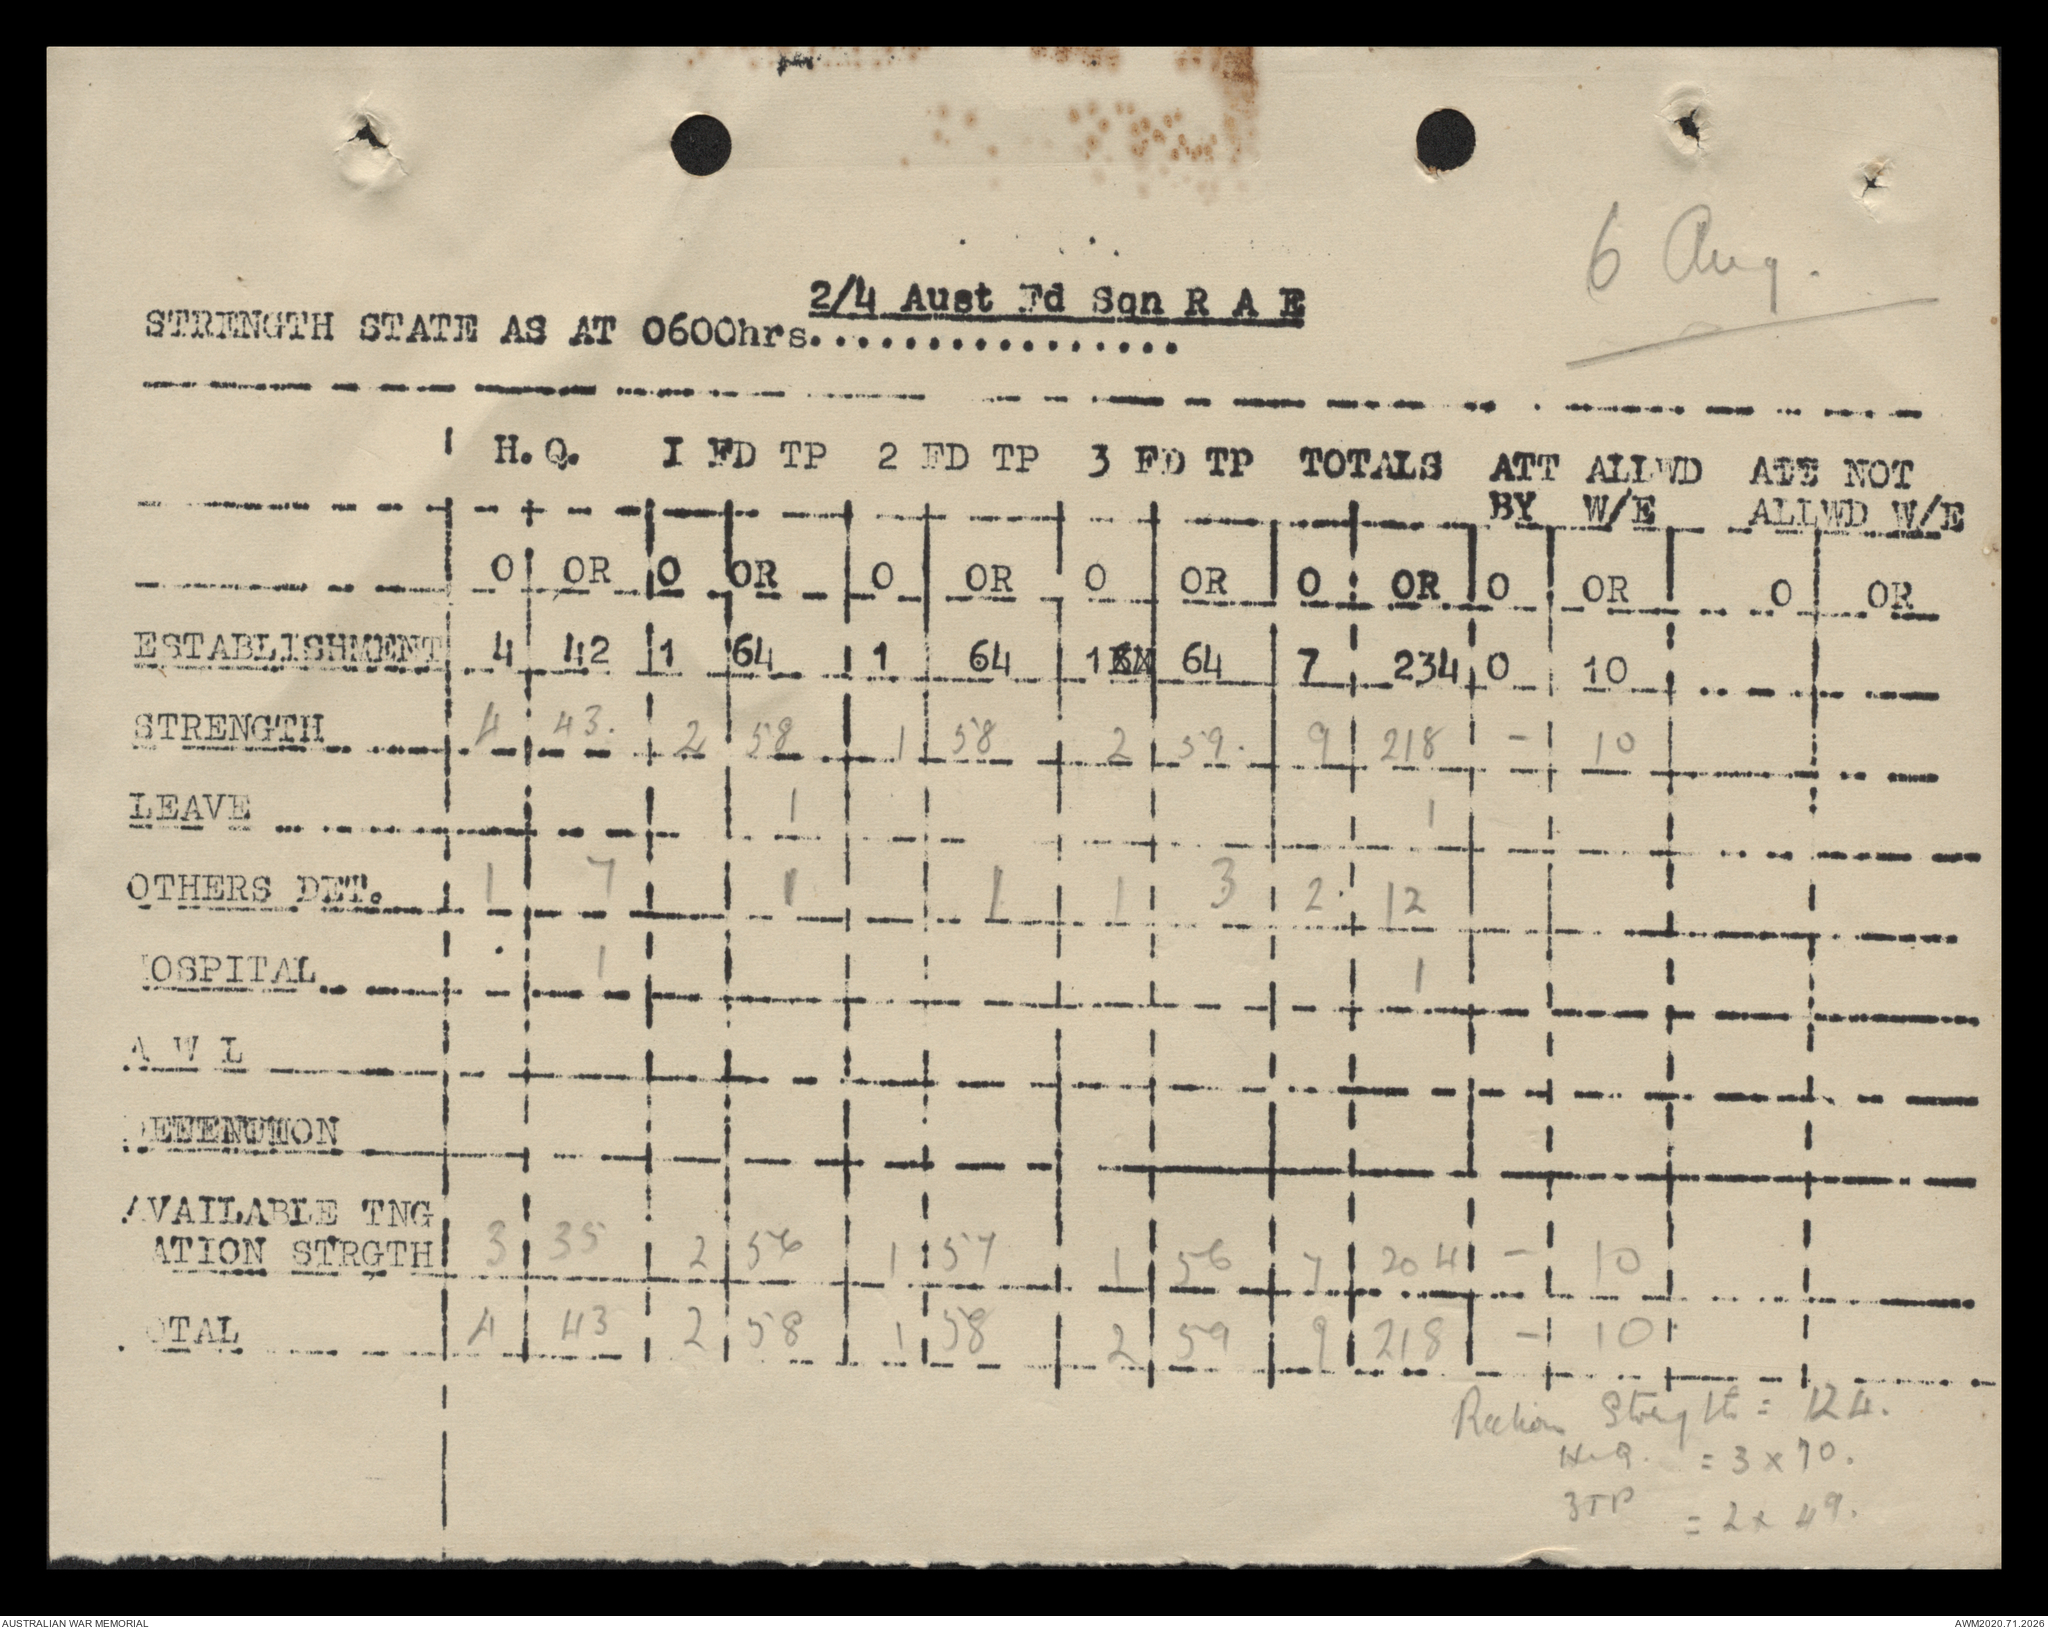 6 Aug.
2/4 Aust Fd Sqn R A E
STRENGTH STATE AS AT 0600hrs.................
H.Q. I FD TP 2 FD TP 3 FD TP TOTALS ATT ALLWD ADE NOT
BY W/E ALLWD W/E
O OR O OR O OR O OR O OR O OR O OR
ESTABLISHMENT 4 42 1 64 1 64 1 64 7 234 0 10
STRENGTH 4 43. 2 58 1 58 2 59. 9 218 - 10
LEAVE 1 1
OTHERS DET. 1 7 1 1 1 3 2. 12
OSPITAL 1 1
A W L
DETENTION
AVAILABLE TNG
ATION STRGTH 3 35 2 56 1 57 1 56 7 204 - 10
OTAL 4 43 2 58 1 58 2 59 9 218 - 10
Ration Strength = 124.
H.Q. = 3 x 70.
3 TP = 2 x 49.
AUSTRALIAN WAR MEMORIAL
AWM2020.71.2026